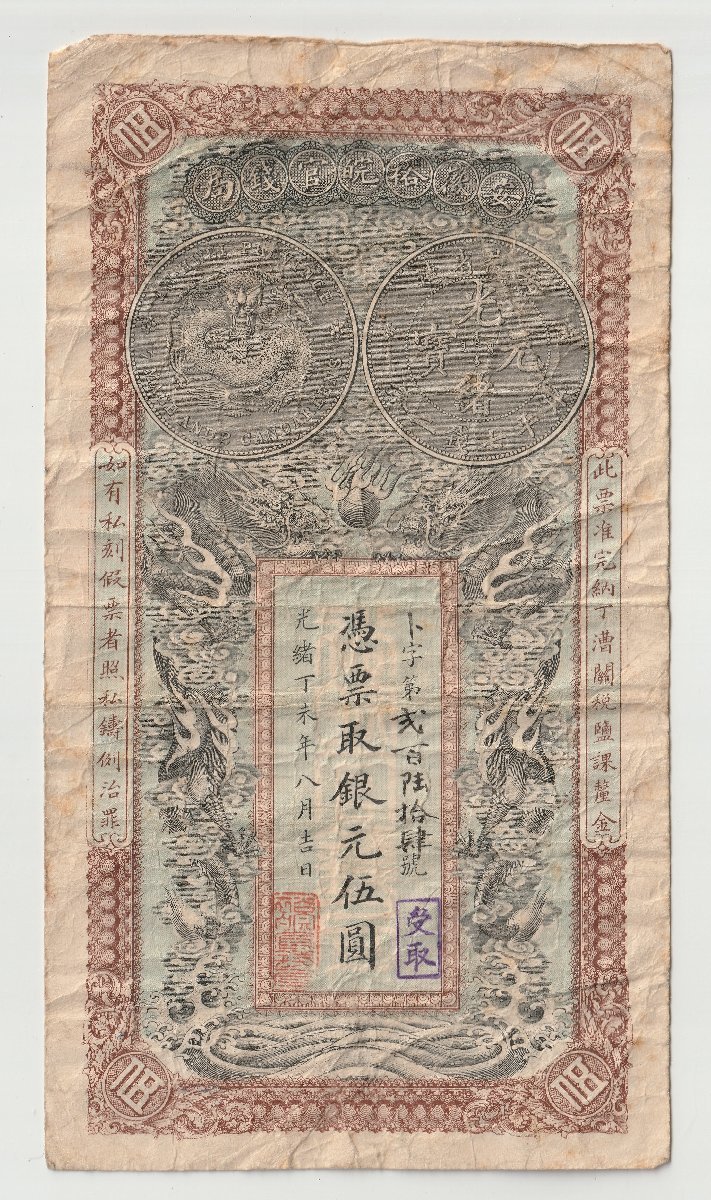 伍
伍
安徽裕皖官錢局
光緒元寶
此票准完納丁漕關稅鹽課釐金
卜字第貳百陸拾肆號
憑票取銀元伍圓
光緒丁未年八月吉日
如有私刻假票者照私鑄例治罪
受取
伍
伍